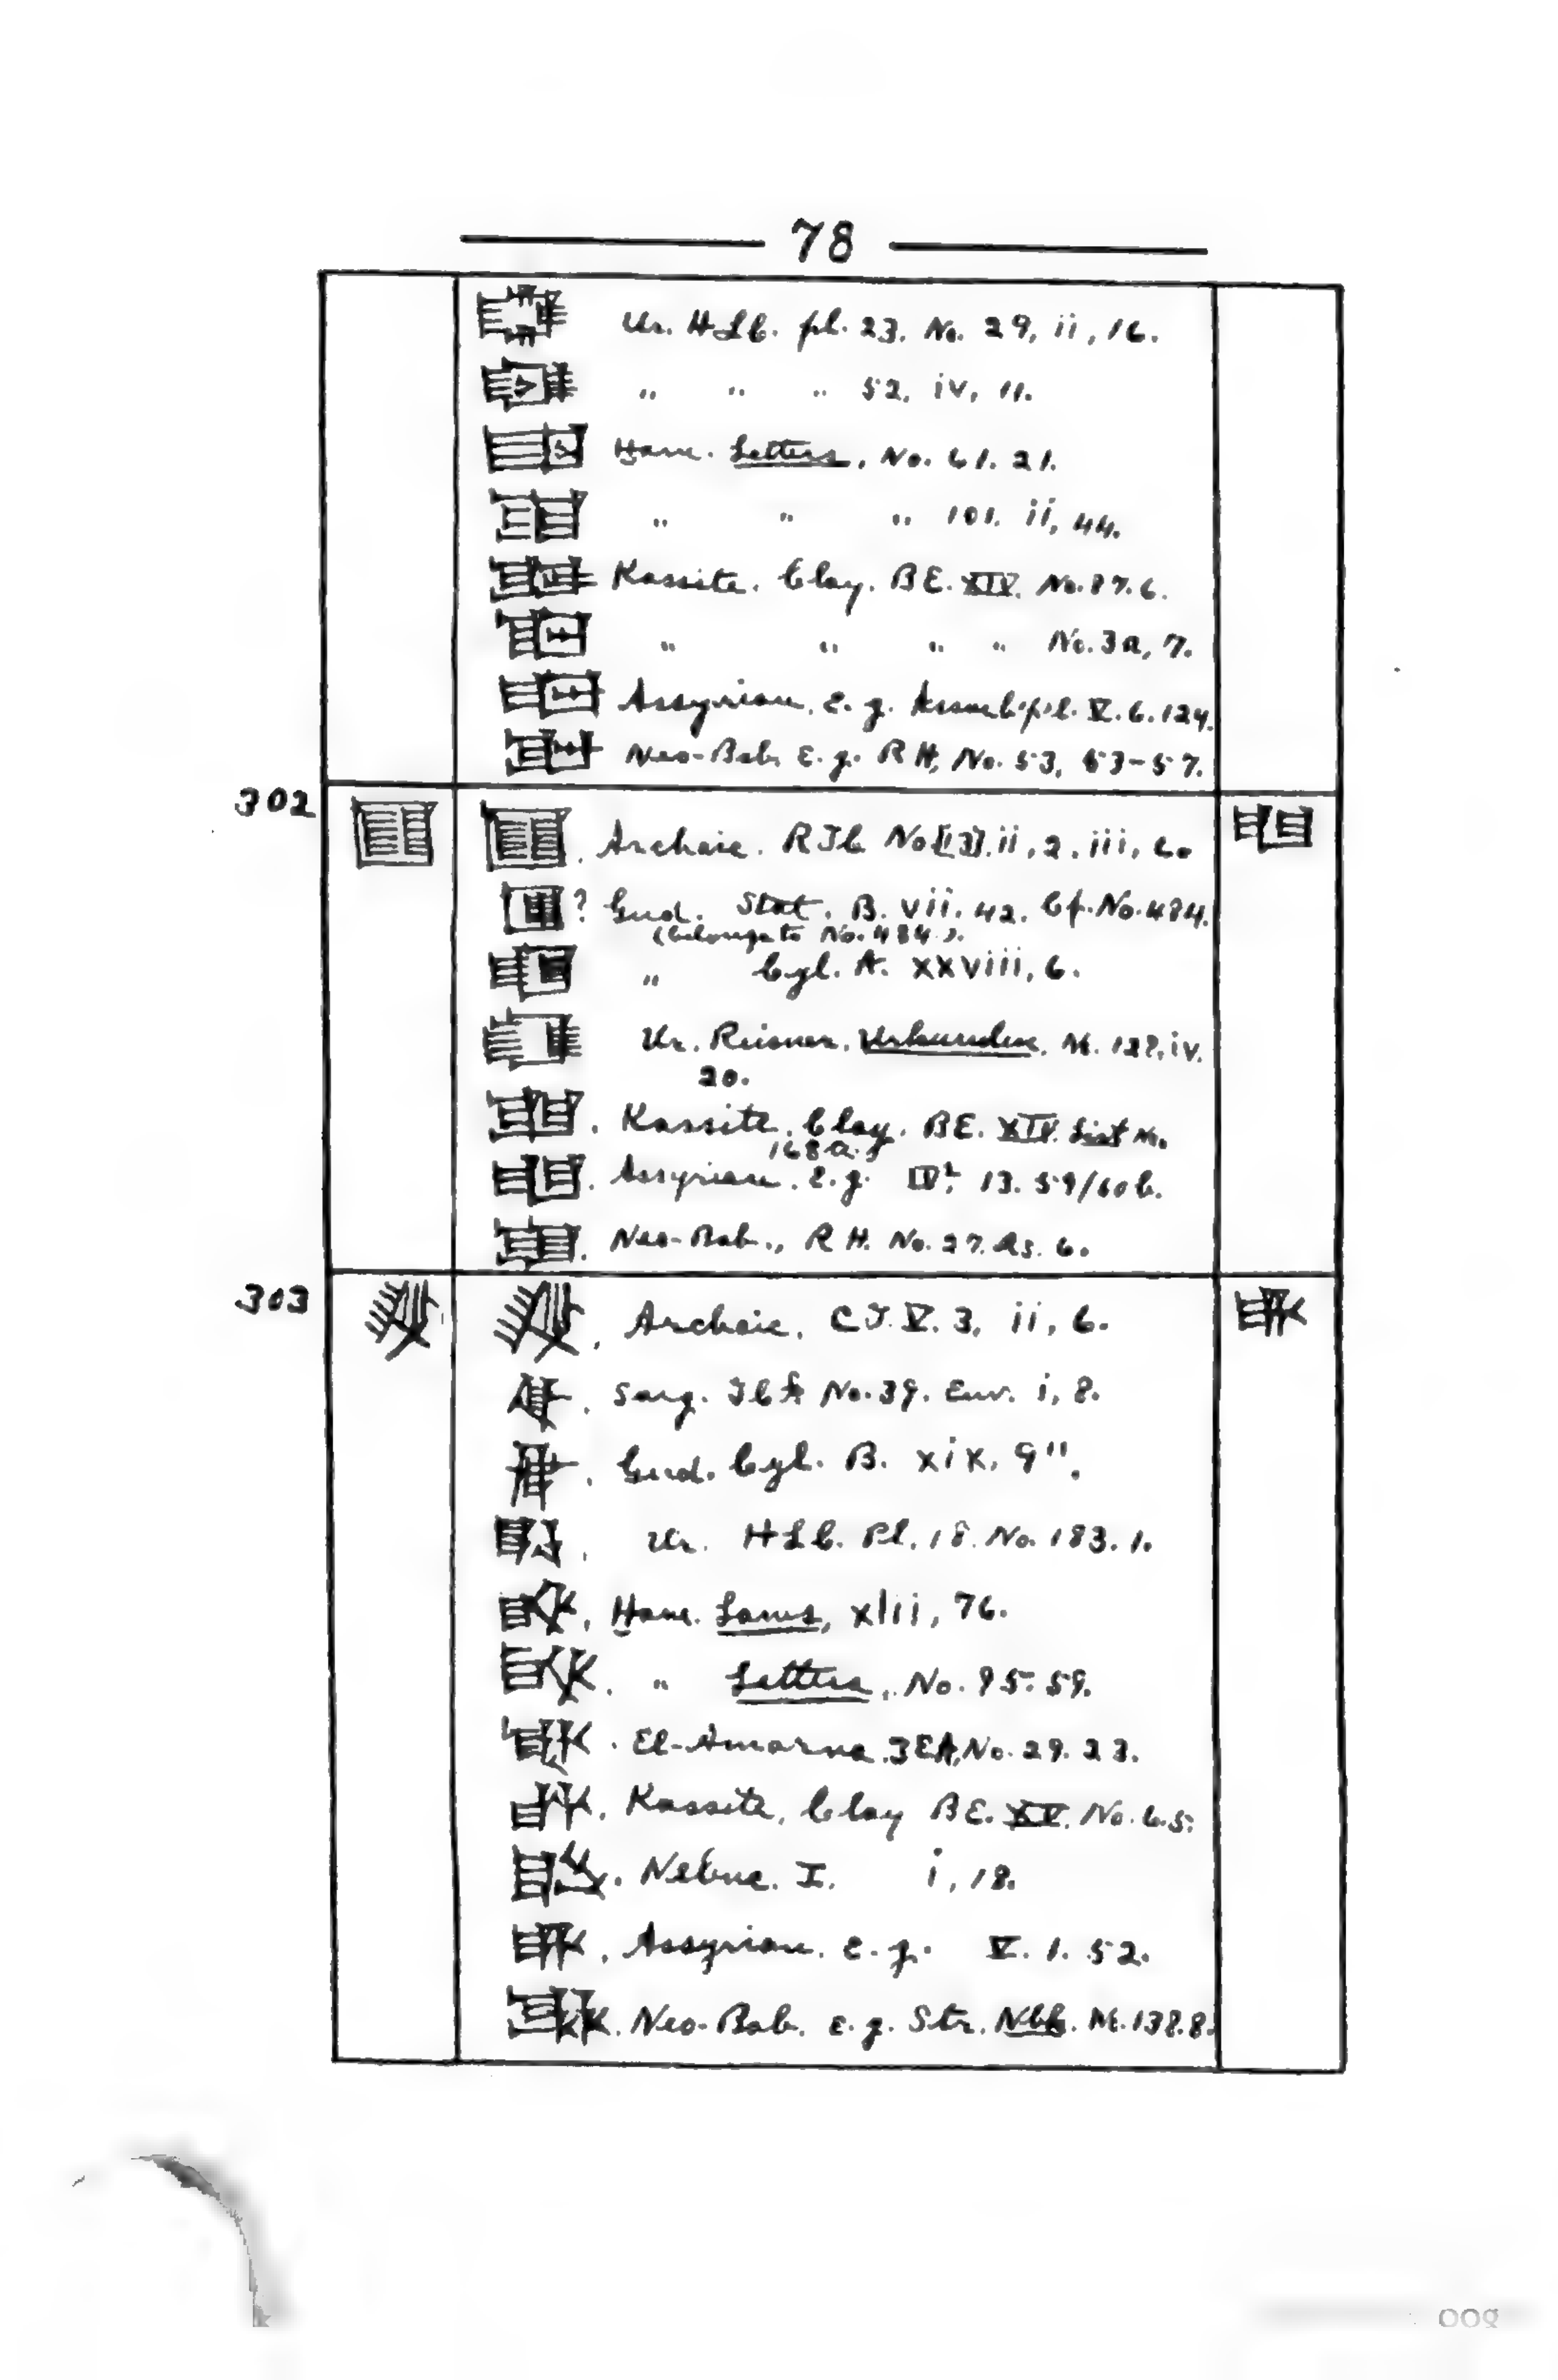 78
Ur. HLC. pl. 23. No. 29, ii, 16.
" " " 52, iv, 11.
Ḫam. Letters, No. 61. 21.
" " " 101. ii, 44.
Kassite. Clay. BE. XIV. No. 87. 6.
" " " " No. 3a, 7.
Assyrian, e. g. V. 6. 124.
Neo-Bab. e. g. RH, No. 53, 53-57.
302
Archaic. RTC No [13]. ii, 2, iii, 6.
? Gud. Stat. B. vii. 42. Cf. No. 484.
(belongs to No. 484).
" Cyl. A. xxviii, 6.
Ur. Reisner. Urkunden. No. 128, iv.
20.
Kassite. Clay. BE. XIV. List No.
168a.
Assyrian. e. g. IV². 13. 59/60 b.
Neo-Bab., RH. No. 27. Rs. 6.
303
Archaic, CT. V. 3, ii, 6.
Sarg. No. 39. Env. i, 8.
Gud. Cyl. B. xix, 9".
Ur. HLC. Pl. 18. No. 183. 1.
Ḫam. Laws, xlii, 76.
" Letters, No. 95. 59.
El-Amarna. No. 29. 23.
Kassite, Clay BE. XV. No. 6. 5.
Nebuc. I. i, 18.
Assyrian. e. g. V. 1. 52.
Neo-Bab. e. g. Str. Nbk. No. 138. 8.